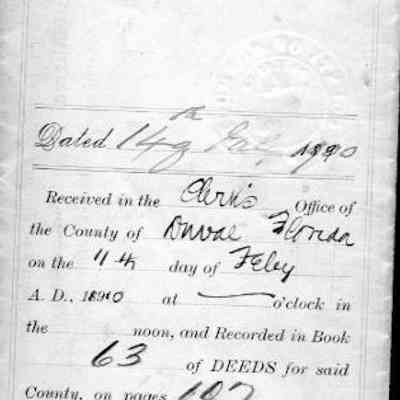 Dated 14th 1890
Received in the Clerk's Office of
the County of Duval Florida
on the 11th day of Feby
A. D., 1890 at o'clock in
the noon, and Recorded in Book
63 of DEEDS for said
County, on pages 107